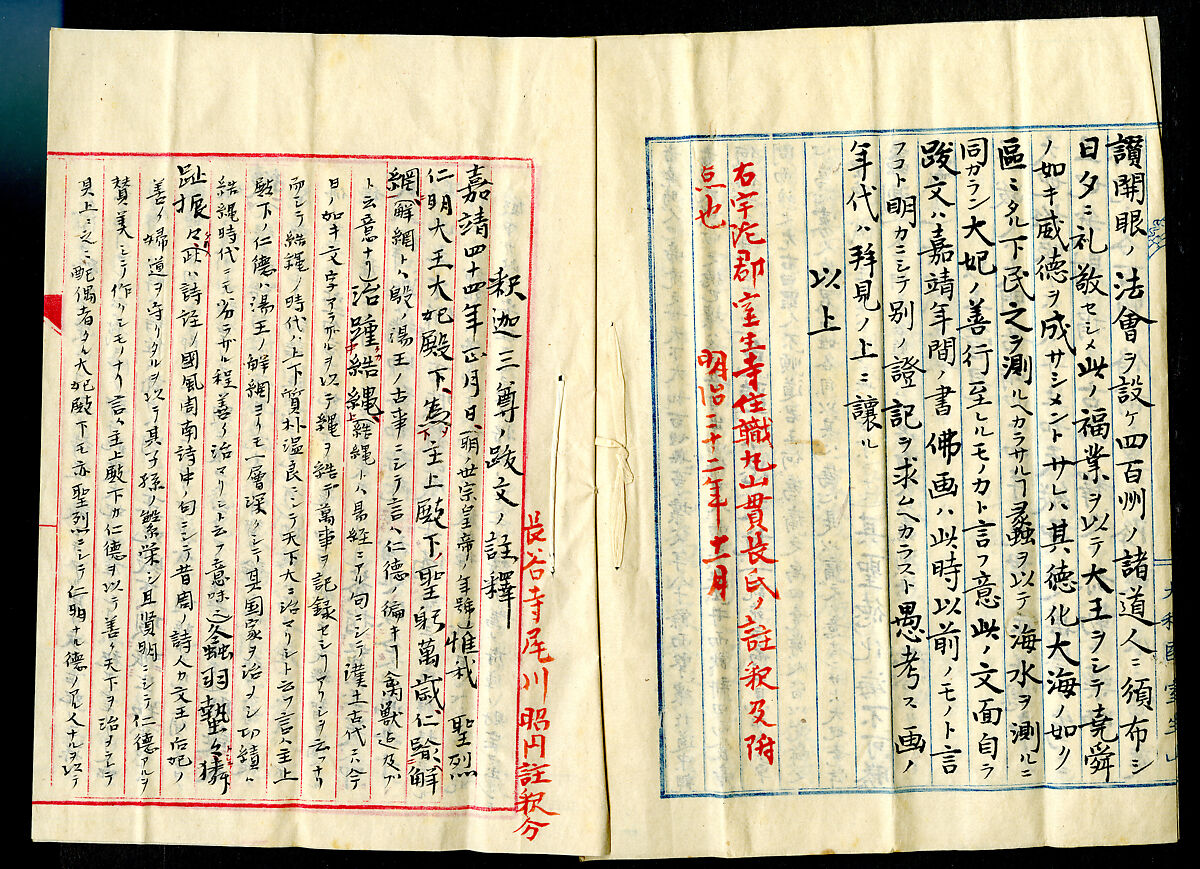 讃開眼ノ法會ヲ設ケ四百州ノ諸道人ニ頒布シ
日夕ニ礼敬セシメ此ノ福業ヲ以テ大王ヲシテ堯舜
ノ如キ威徳ヲ成サシメントサレハ其徳化大海ノ如ク
區ミタル下民之ヲ測ルヘカラサルヿ蠡ヲ以テ海水ヲ測ルニ
同ガラン大妃ノ善行至レルモノカト言フ意此ノ文面自ラ
跋文ハ嘉靖年間ノ書佛画ハ此時以前ノモノト言
フコト明カニシテ別ノ證記ヲ求ムヘカラスト愚考ス画ノ
年代ハ拜見ノ上ニ讓ル
以上
右宇陀郡室生寺住職丸山貫長氏ノ註釈及附
点也 明治二十二年十一月
大和国室生山
長谷寺尾川昭円註釈分
釈迦三尊ノ跋文ノ註釋
嘉靖四十四年正月日明ノ世宗皇帝ノ年號惟我 聖烈
仁明大王大妃殿下、為主上殿下ノ聖躬萬歳、仁踰解
網、解網トハ殷ノ湯王ノ古事ニシテ言ハ仁徳ノ徧キヿ禽獣迄及ブ
ト云意ナリ治踵結縄、結縄トハ易経ニアル句ニシテ漢土古代ニハ今
日ノ如キ文字アラザルヲ以テ縄ヲ結デ萬事ヲ記録セシヿアリシヲ云フナリ
而シテ結縄ノ時代ハ上下質朴温良ニシテ天下大ニ治マリシト云フ言ハ主上
殿下ノ仁徳ハ湯王ノ解網ヨリモ一層深クシテ其国家ヲ治メシ功績ハ
結縄時代ニモ劣ラザル程善ク治マリシト云フ意味也螽羽蟄々麟
趾振々此ハ詩経ノ國風周南詩中ノ句ニシテ昔周ノ詩人カ文王ノ后妃ノ
善ク婦道ヲ守リタルヲ以テ其子孫ノ繁栄シ且賢明ニシテ仁徳アルヲ
賛美シテ作リシモノナリ言ハ主上殿下カ仁徳ヲ以テ善ク天下ヲ治メシテ
其上ニ之ニ配偶者タル大妃殿下モ亦聖烈ニシテ仁明ナル徳ノアル人ナルヲ以テ